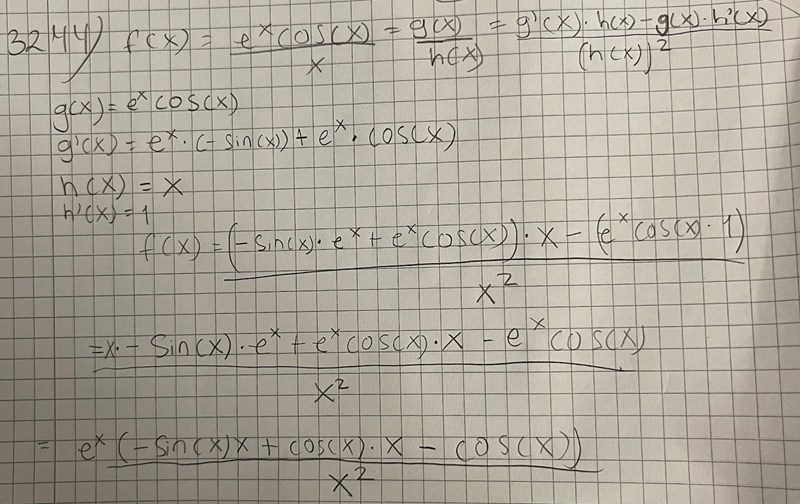 3244) f(x) = e^x cos(x) / x = g(x) / h(x) = g'(x) · h(x) - g(x) · h'(x) / (h(x))^2
g(x) = e^x cos(x)
g'(x) = e^x · (- sin(x)) + e^x · cos(x)
h(x) = x
h'(x) = 1
f(x) = (- sin(x) · e^x + e^x cos(x)) · x - (e^x cos(x) · 1) / x^2
= x · - sin(x) · e^x + e^x cos(x) · x - e^x cos(x) / x^2
= e^x (- sin(x) x + cos(x) · x - cos(x)) / x^2